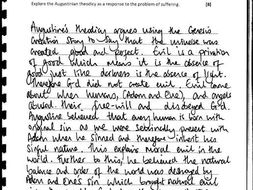 Explore the Augustinian theodicy as a response to the problem of suffering. [8]
Augustine's theodicy argues using the Genesis
Creation story to say that the universe was
created good and perfect. Evil is a privation
of good which means it is the absence of
good just like darkness is the absence of light.
Therefore God did not create evil. Evil came
about when humans (Adam and Eve) and angels
abused their free-will and disobeyed God.
Augustine believed that every human is born with
original sin as we were seminally present with
Adam when he sinned and therefore inherit his
sinful nature. This explains moral evil in the
world. Further to this, he believed the natural
balance and order of the world was damaged by
Adam and Eve's sin which brought natural evil